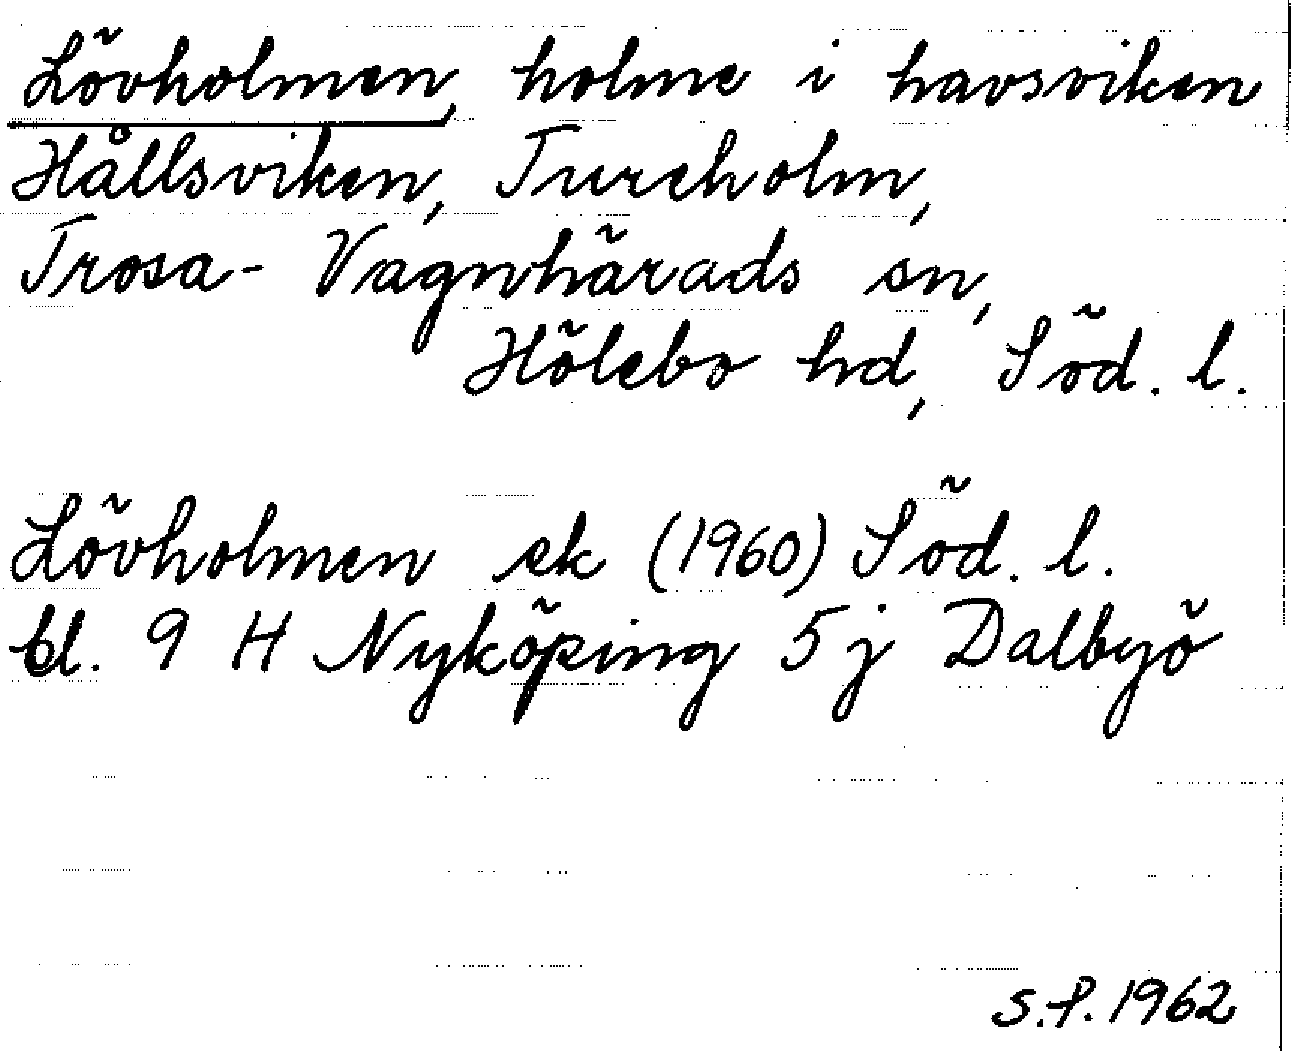 Lövholmen, holme i havsviken
Hållsviken, Tureholm,
Trosa-Vagnhärads sn,
Hölebo hd, Söd. l.
Lövholmen ek (1960) Söd. l.
bl. 9 H Nyköping 5 j Dalbyö
S.P. 1962